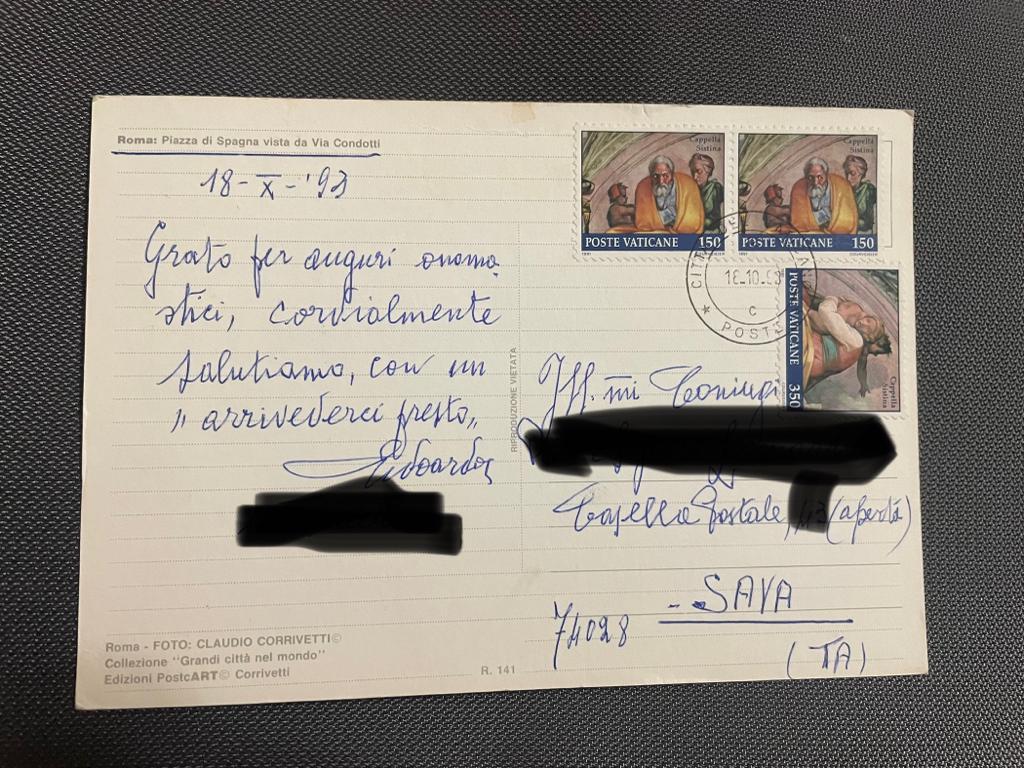 Roma: Piazza di Spagna vista da Via Condotti
18-X-'93
Grato per auguri onoma-
stici, cordialmente
salutiamo, con un
"arrivederci presto"
Edoardo
Roma - FOTO: CLAUDIO CORRIVETTI©
Collezione "Grandi città nel mondo"
Edizioni PostcART© Corrivetti
R. 141
RIPRODUZIONE VIETATA
Cappella
Sistina
POSTE VATICANE 150
1991
Cappella
Sistina
POSTE VATICANE 150
1991
Cappella
Sistina
POSTE VATICANE 350
CITTÀ
18.10.93
C
POSTE
Ill.mi Coniugi
Casella Postale, 13 (aperta)
74028 - SAVA
(TA)